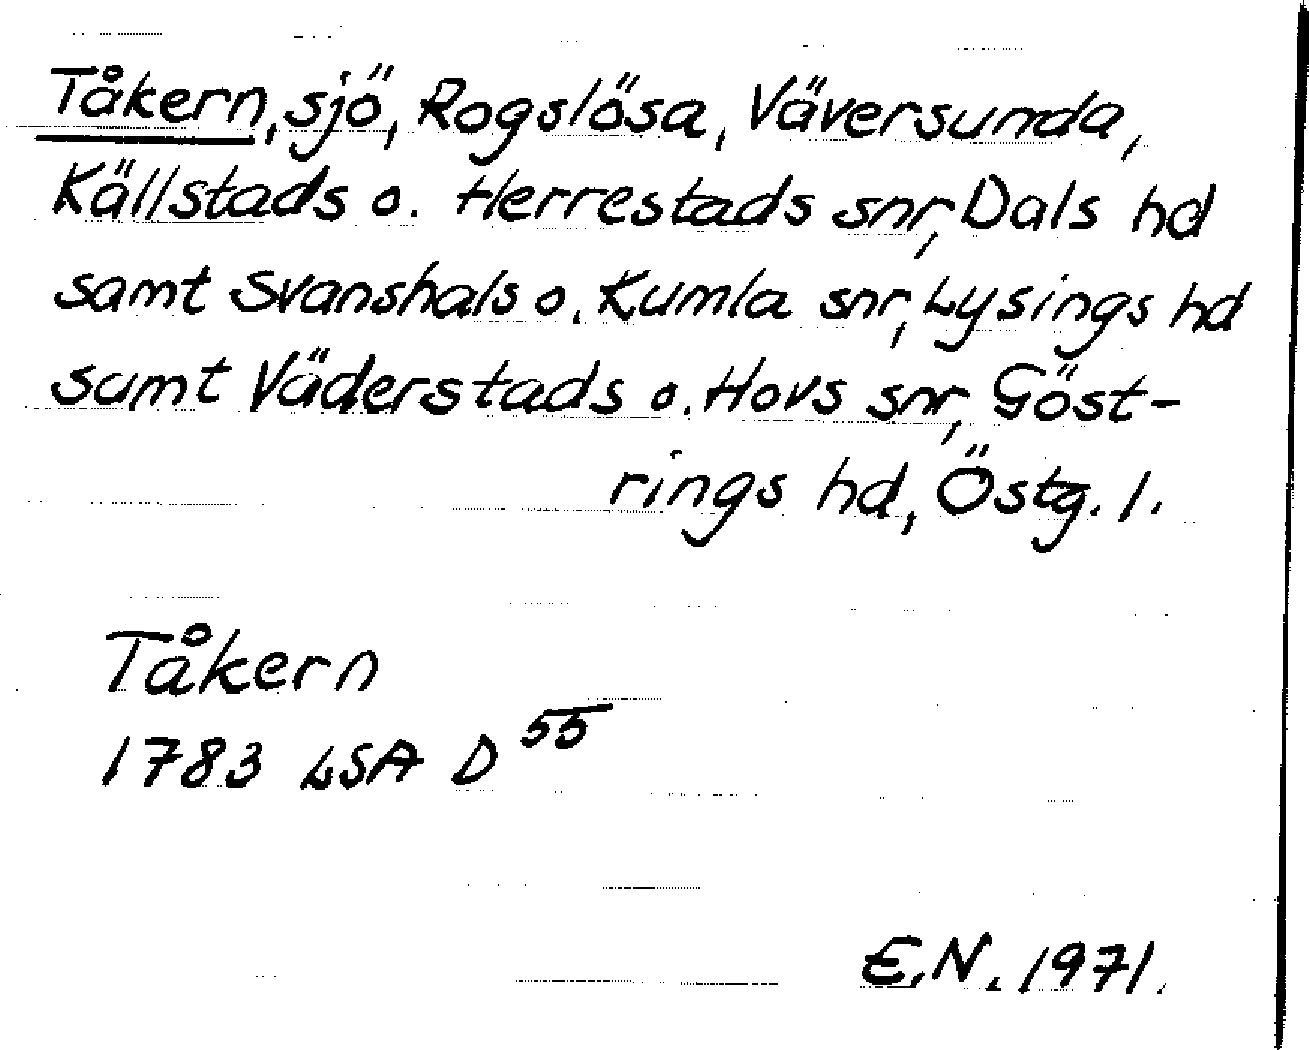 Tåkern, sjö, Rogslösa, Väversunda,
Källstads o. Herrestads snr, Dals hd
samt Svanshals o. Kumla snr, Lysings hd
samt Väderstads o. Hovs snr, Göst-
rings hd, Östg. l.
Tåkern
1783 LSA D 55
E.N. 1971.